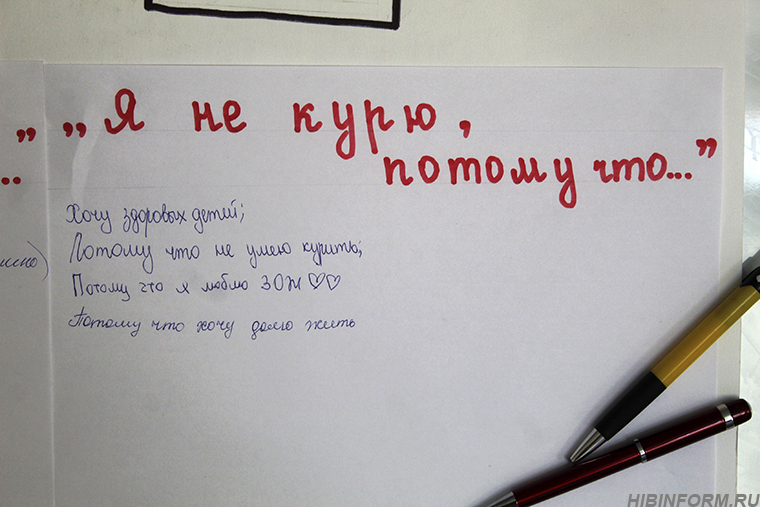 ” „Я не курю,
.. потому что...”
Хочу здоровых детей;
Потому что не умею курить;
Потому что я люблю ЗОЖ ♡♡
Потому что хочу долго жить
HIBINFORM.RU